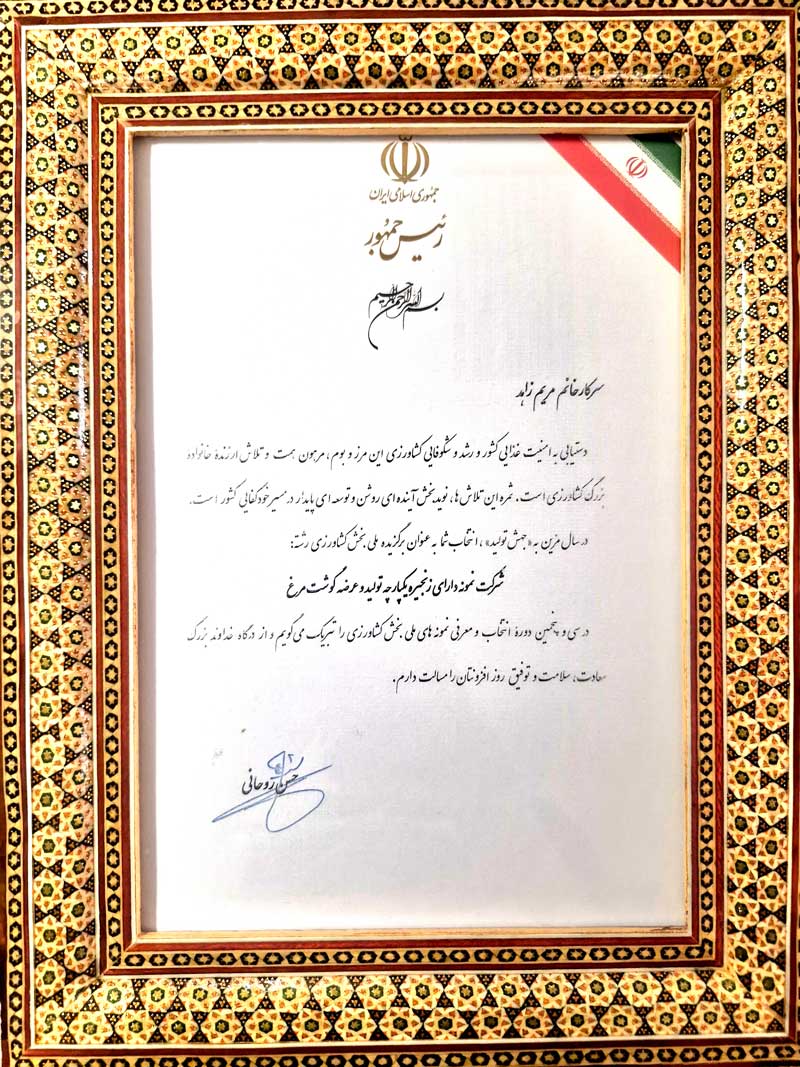 جمهوری اسلامی ایران
رئیس جمهور
بسم الله الرحمن الرحیم
سرکار خانم مریم زاهد
دستیابی به امنیت غذایی کشور و رشد و شکوفایی کشاورزی این مرز و بوم، مرهون همت و تلاش ارزندهٔ خانواده
بزرگ کشاورزی است. ثمره این تلاش ها، نویدبخش آینده ای روشن و توسعه ای پایدار در مسیر خودکفایی کشور است.
در سال مزین به «جهش تولید»، انتخاب شما به عنوان برگزیده ملی بخش کشاورزی رشته:
شرکت نمونه دارای زنجیره یکپارچه تولید و عرضه گوشت مرغ
در سی و پنجمین دورهٔ انتخاب و معرفی نمونه های ملی بخش کشاورزی را تبریک می گویم و از درگاه خداوند بزرگ
سعادت، سلامت و توفیق روز افزونتان را مسالت دارم.
حسن روحانی